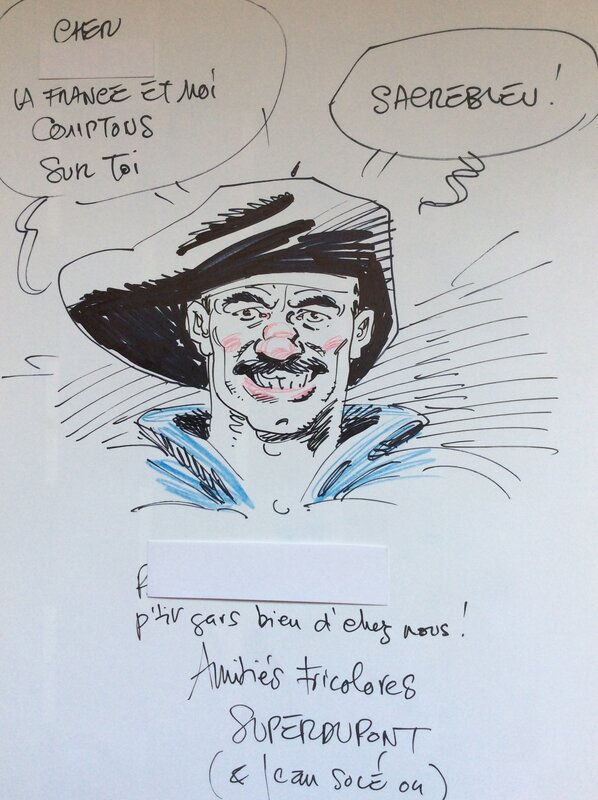 CHER
LA FRANCE ET MOI
COMPTONS
SUR TOI
SACREBLEU !
p'tit gars bien d'chez nous !
Amitiés tricolores
SUPERDUPONT
(& Jean Solé 04)